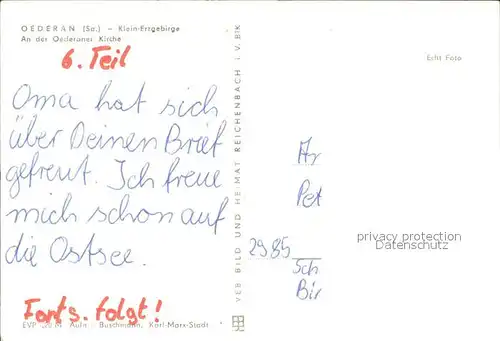 OEDERAN (Sa.) – Klein-Erzgebirge
An der Oederaner Kirche
6. Teil
Oma hat sich
über Deinen Brief
gefreut. Ich freue
mich schon auf
die Ostsee.
Forts. folgt!
EVP -,20 M Aufn.: Buschmann, Karl-Marx-Stadt
VEB BILD UND HEIMAT REICHENBACH i. V. BIK
Echt Foto
Ar
Pet
privacy protection
Datenschutz
2985
Sch
Bir